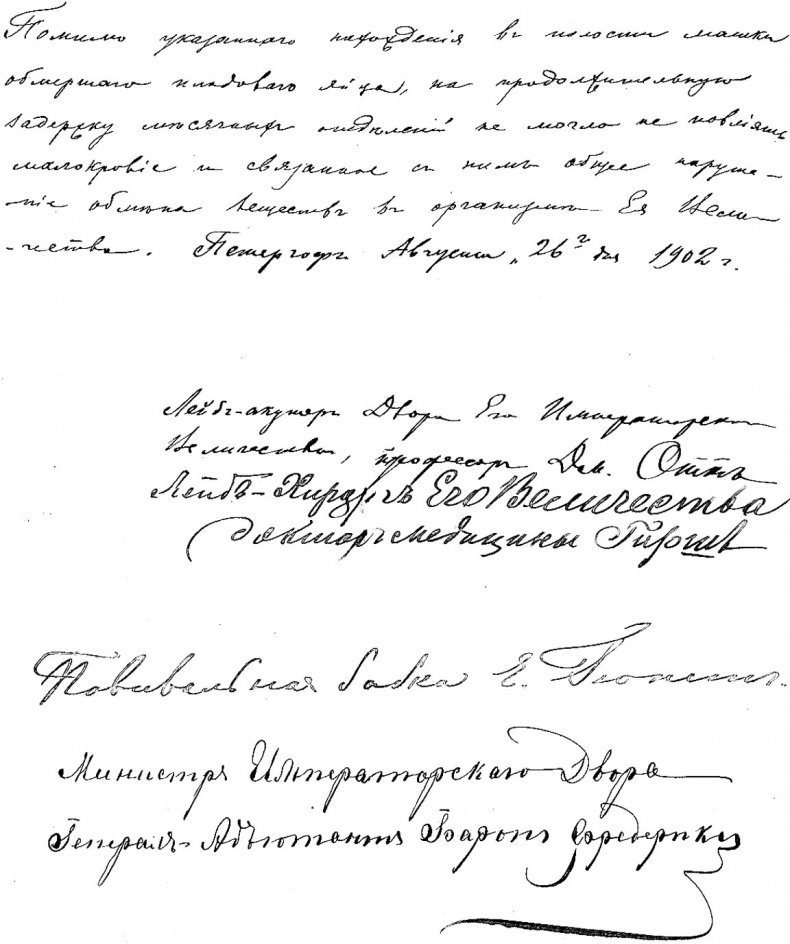 Помимо указаннаго нахожденія въ полости матки
обмершаго плодоваго яйца, на продолжительную
задержку мѣсячныхъ отдѣленій не могло не повліять
малокровіе и связанное съ нимъ общее наруше-
-ніе обмѣна веществъ въ организмѣ Ея Вели-
-чества. Петергофъ Августа „26го дня 1902 г.
Лейбъ-акушеръ Двора Его Императорскаго
Величества, профессоръ Дм. Оттъ
Лейбъ-Хирургъ Его Величества
Докторъ медицины Гиршъ
Повивальная бабка Е. Гюнстъ.
Министръ Императорскаго Двора
Генералъ-Адъютантъ Баронъ Фредериксъ